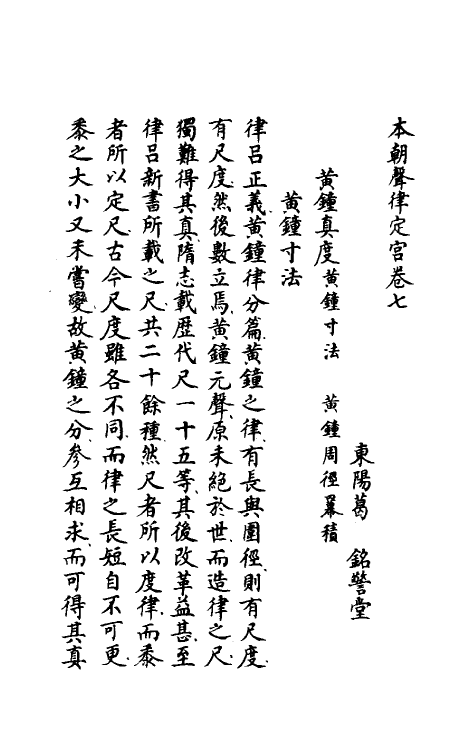 本朝聲律定宮卷七
東陽葛 銘警堂
黃鐘真度 黃鐘寸法 黃鐘周徑冪積
黃鐘寸法
律呂正義黃鐘律分篇黃鐘之律有長與圍徑則有尺度
有尺度然後數立焉黃鐘元聲原未絕於世而造律之尺
獨難得其真隋志載歷代尺一十五等其後改革益甚至
律呂新書所載之尺共二十餘種然尺者所以度律而黍
者所以定尺古今尺度雖各不同而律之長短自不可更
黍之大小又未嘗變故黃鐘之分參互相求而可得其真